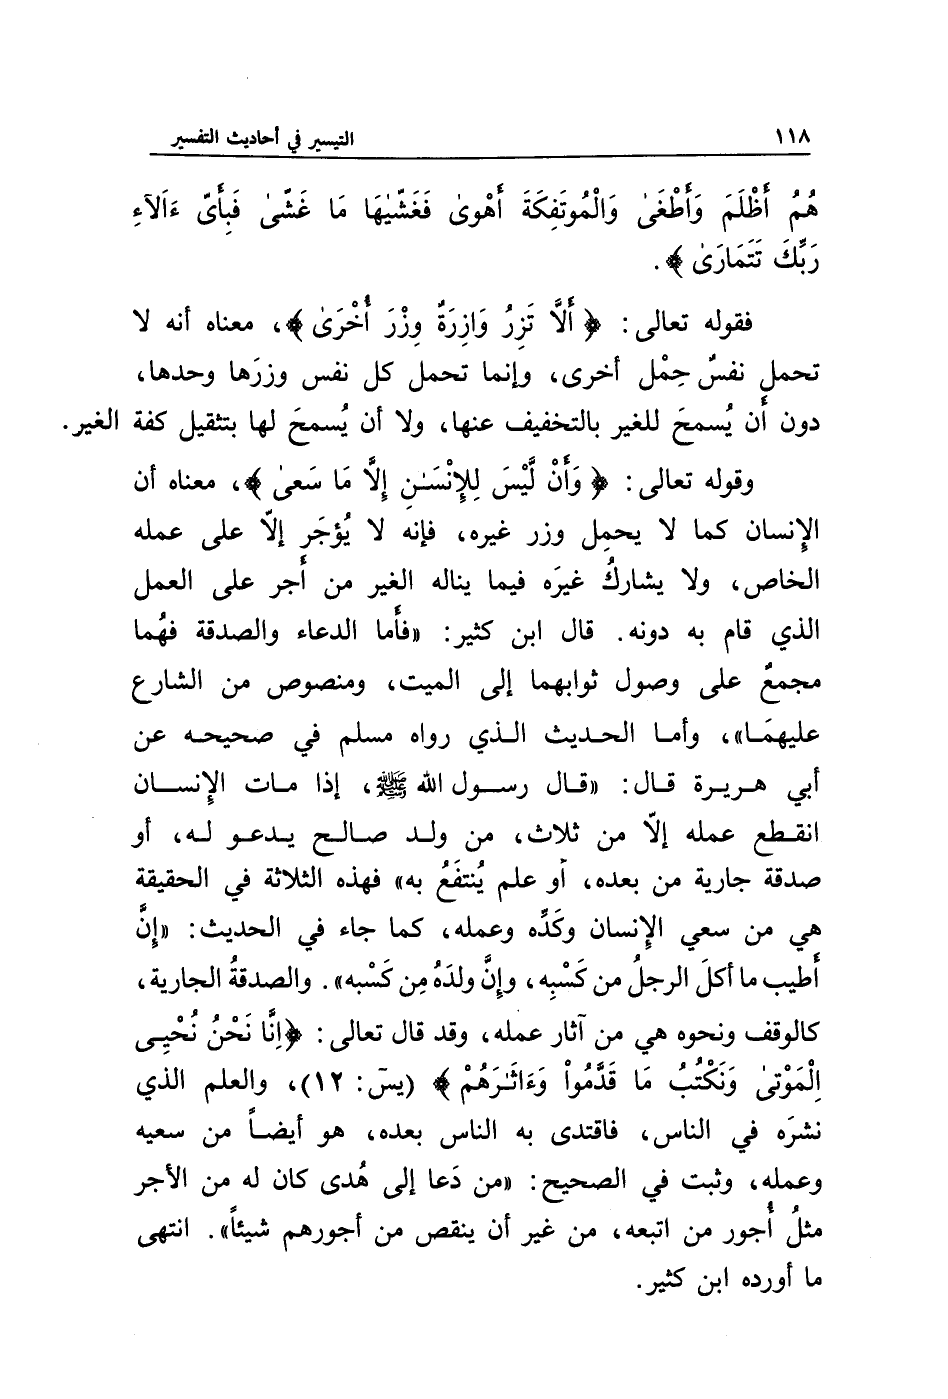 ١١٨ التيسير في أحاديث التفسير
هُمُ أَظْلَمَ وَأَطْغَىٰ وَالْمُوتَفِكَةَ أَهْوىٰ فَغَشّيٰهَا مَا غَشّىٰ فَبِأَىِّ ءَالَآءِ
رَبِّكَ تَتَمَارَىٰ ﴾.
فقوله تعالى: ﴿ أَلَّا تَزِرُ وَازِرَةٌ وِزْرَ أُخْرَىٰ ﴾، معناه أنه لا
تحمل نفسٌ حِمْل أخرى، وإنما تحمل كل نفس وزرَها وحدها،
دون أن يُسمحَ للغير بالتخفيف عنها، ولا أن يُسمحَ لها بتثقيل كفة الغير.
وقوله تعالى: ﴿ وَأَنْ لَّيْسَ لِلِانْسَـٰنِ إِلَّا مَا سَعىٰ ﴾، معناه أن
الإنسان كما لا يحمِل وزر غيره، فإنه لا يُؤجَر إلّا على عمله
الخاص، ولا يشاركُ غيرَه فيما يناله الغير من أجر على العمل
الذي قام به دونه. قال ابن كثير: «فأما الدعاء والصدقة فهُما
مجمعٌ على وصول ثوابهما إلى الميت، ومنصوص من الشارع
عليهمَا»، وأما الحديث الذي رواه مسلم في صحيحه عن
أبي هريرة قال: «قال رسول الله ﷺ، إذا مات الإنسان
انقطع عمله إلّا من ثلاث، من ولد صالح يدعو له، أو
صدقة جارية من بعده، أو علم يُنتفَعُ به» فهذه الثلاثة في الحقيقة
هي من سعي الإنسان وكَدِّه وعمله، كما جاء في الحديث: «إنَّ
أَطيب ما أكلَ الرجلُ من كَسْبِه، وإنَّ ولدَهُ مِن كَسْبه». والصدقةُ الجارية،
كالوقف ونحوه هي من آثار عمله، وقد قال تعالى: ﴿إِنَّا نَحْنُ نُحْيِـى
الْمَوْتىٰ وَنَكْتُبُ مَا قَدَّمُواْ وَءَاثَـٰرَهُمْ ﴾ (يسٓ: ١٢)، والعلم الذي
نشرَه في الناس، فاقتدى به الناس بعده، هو أيضاً من سعيه
وعمله، وثبت في الصحيح: «من دَعا إلى هُدى كان له من الأجر
مثلُ أُجور من اتبعه، من غير أن ينقص من أجورهم شيئاً». انتهى
ما أورده ابن كثير.